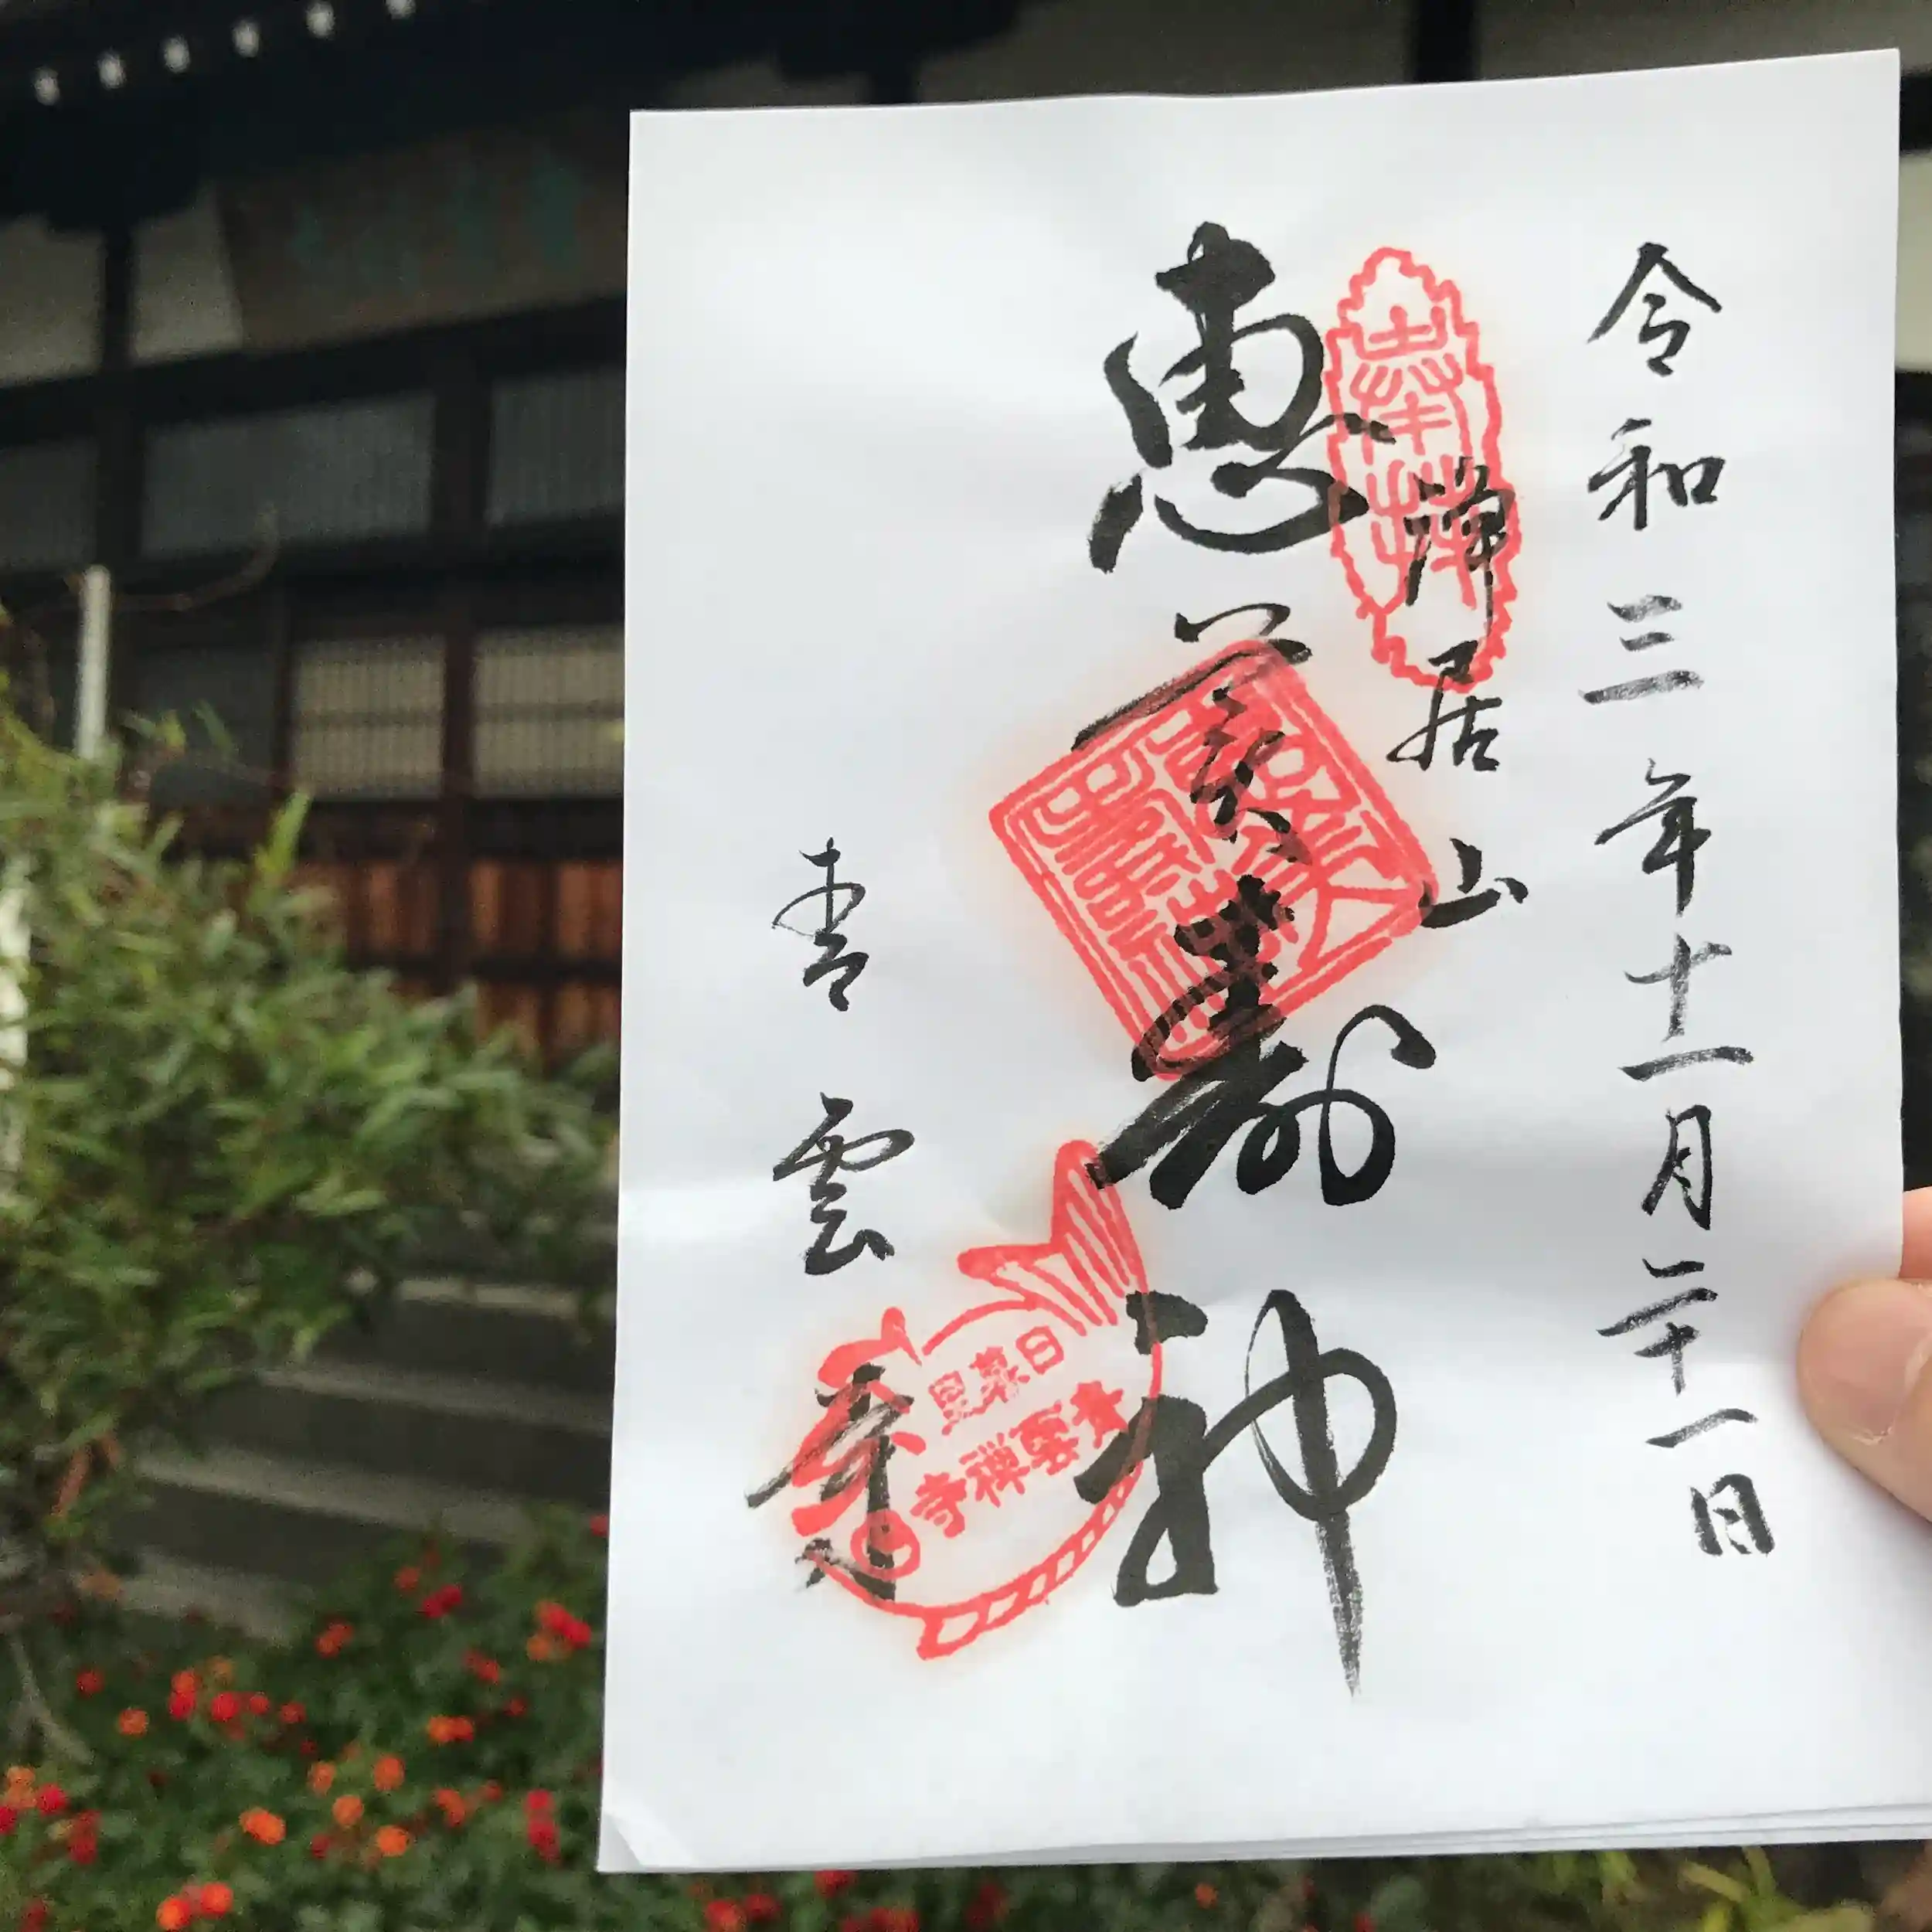 令和三年十一月二十一日
奉拝
浄居山
惠美壽神
青雲寺
日暮里
青雲禅寺